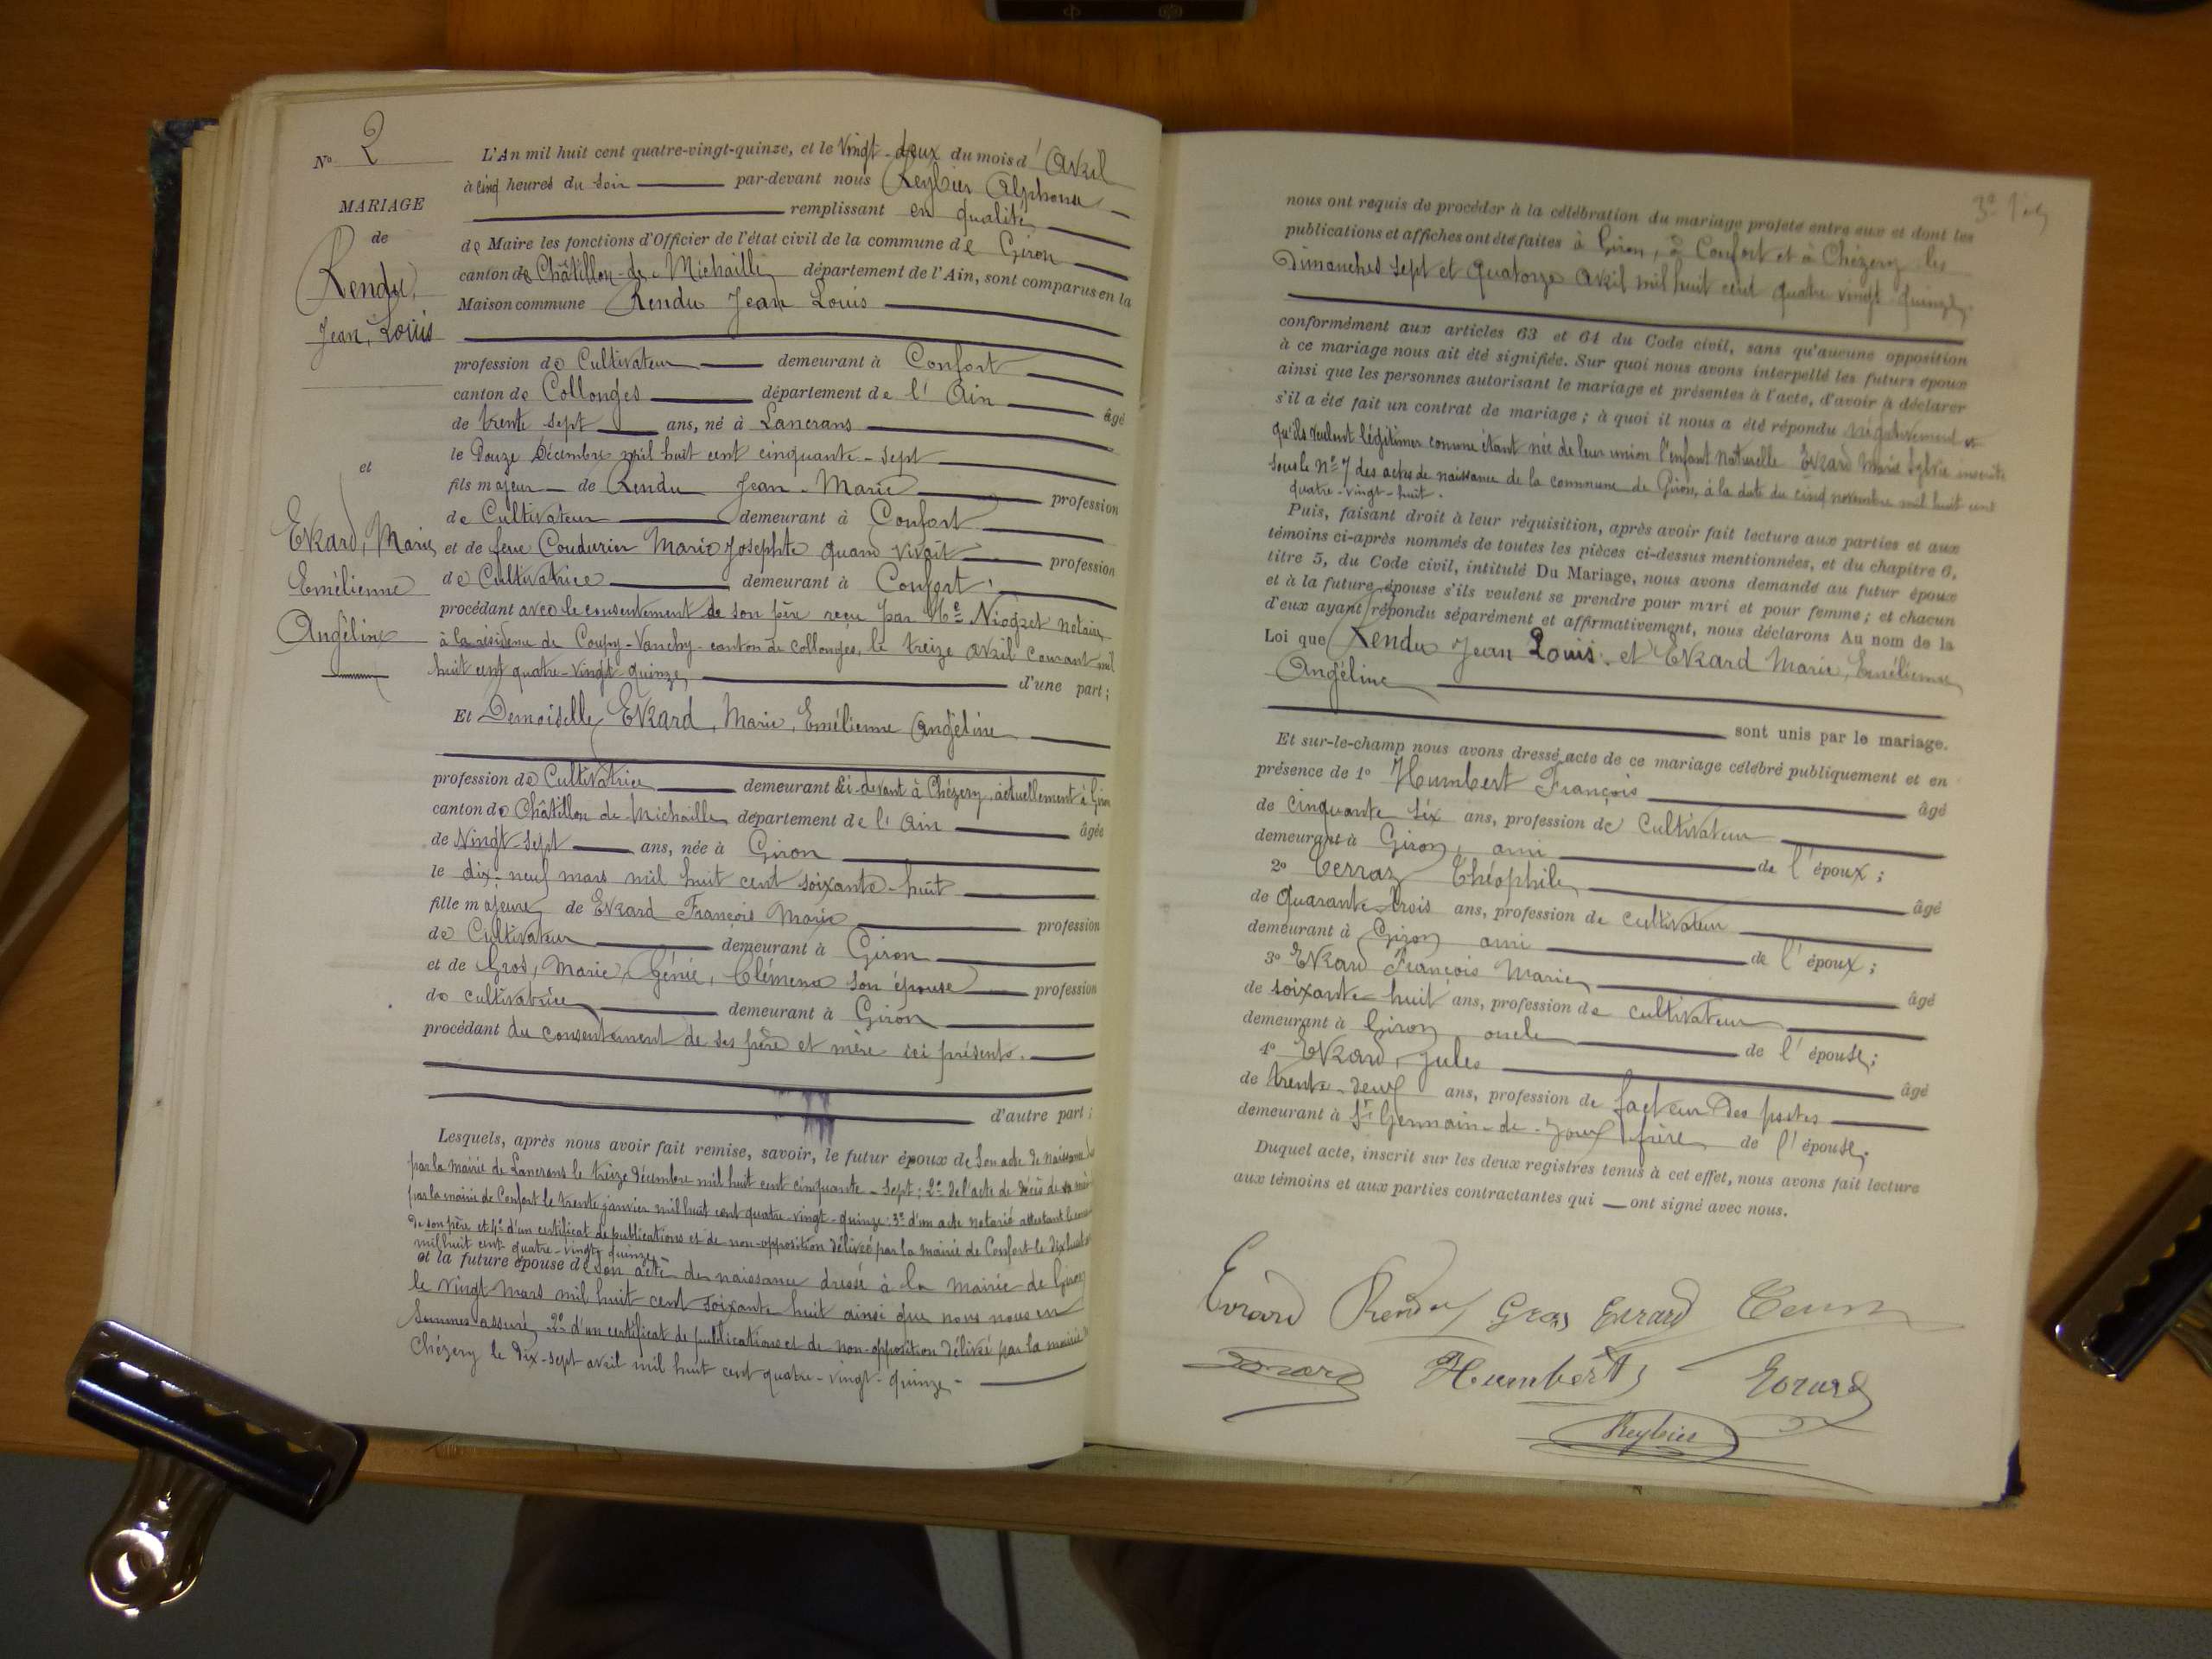 N° 2
MARIAGE
de
Rendu,
Jean, Louis
et
Evrard, Marie
Emélienne
Angéline
L'An mil huit cent quatre-vingt-quinze, et le vingt-deux du mois d'Avril
à cinq heures du soir par-devant nous Reybier Alphonse
remplissant en qualité
de Maire les fonctions d'Officier de l'état civil de la commune de Giron
canton de Châtillon-de-Michaille département de l'Ain, sont comparus en la
Maison commune Rendu Jean Louis
profession de Cultivateur demeurant à Confort
canton de Collonges département de l'Ain âgé
de trente sept ans, né à Lancrans
le Douze Décembre mil huit cent cinquante-sept
fils majeur de Rendu Jean-Marie profession
de Cultivateur demeurant à Confort
et de feue Coudurier Marie Josephte quand vivait profession
de Cultivatrice demeurant à Confort
procédant avec le consentement de son père reçu par Me Niogret notaire
à la résidence de Coupy-Vanchy canton de Collonges, le treize avril courant mil
huit cent quatre-vingt-quinze, d'une part;
Et Demoiselle Evrard, Marie, Emélienne Angéline
profession de Cultivatrice demeurant ci-devant à Chézery, actuellement à Giron
canton de Châtillon de Michaille département de l'Ain âgée
de Vingt-sept ans, née à Giron
le dix-neuf mars mil huit cent soixante-huit
fille majeure de Evrard François Marie profession
de Cultivateur demeurant à Giron
et de Gros, Marie, Génie, Clémence son épouse profession
de cultivatrice demeurant à Giron
procédant du consentement de ses père et mère ici présents.
d'autre part;
Lesquels, après nous avoir fait remise, savoir, le futur époux de son acte de naissance
par la mairie de Lancrans le treize décembre mil huit cent cinquante-sept; 2° de l'acte de décès de sa mère
par la mairie de Confort le trente janvier mil huit cent quatre-vingt-quinze: 3° d'un acte notarié attestant le
de son père et 4° d'un certificat de publications et de non-opposition délivré par la mairie de Confort le dix huit
mil huit cent quatre-vingt quinze
et la future épouse de son acte de naissance dressé à la mairie de Giron
le vingt mars mil huit cent soixante huit ainsi que nous nous en
sommes assuré, 2° d'un certificat de publications et de non-opposition délivré par la mairie
Chézery le dix-sept avril mil huit cent quatre-vingt-quinze
nous ont requis de procéder à la célébration du mariage projeté entre eux et dont les
publications et affiches ont été faites à Giron, à Confort et à Chézery les
Dimanches sept et quatorze avril mil huit cent quatre vingt quinze,
conformément aux articles 63 et 64 du Code civil, sans qu'aucune opposition
à ce mariage nous ait été signifiée. Sur quoi nous avons interpellé les futurs époux
ainsi que les personnes autorisant le mariage et présentes à l'acte, d'avoir à déclarer
s'il a été fait un contrat de mariage; à quoi il nous a été répondu négativement et
qu'ils veulent légitimer comme étant née de leur union l'enfant naturelle Evrard Marie Sylvie inscrite
sous le N° 7 des actes de naissance de la commune de Giron, à la date du cinq novembre mil huit cent
quatre-vingt-huit.
Puis, faisant droit à leur réquisition, après avoir fait lecture aux parties et aux
témoins ci-après nommés de toutes les pièces ci-dessus mentionnées, et du chapitre 6,
titre 5, du Code civil, intitulé Du Mariage, nous avons demandé au futur époux
et à la future épouse s'ils veulent se prendre pour mari et pour femme; et chacun
d'eux ayant répondu séparément et affirmativement, nous déclarons Au nom de la
Loi que Rendu Jean Louis et Evrard Marie, Emélienne
Angéline
sont unis par le mariage.
Et sur-le-champ nous avons dressé acte de ce mariage célébré publiquement et en
présence de 1° Humbert François âgé
de cinquante six ans, profession de Cultivateur
demeurant à Giron, ami de l'époux;
2° Terraz Théophile âgé
de quarante-trois ans, profession de cultivateur
demeurant à Giron ami de l'époux;
3° Evrard François Marie âgé
de soixante-huit ans, profession de cultivateur
demeurant à Giron oncle de l'épouse;
4° Evrard, Jules âgé
de trente-deux ans, profession de facteur des postes
demeurant à St Germain-de-Joux frère de l'épouse;
Duquel acte, inscrit sur les deux registres tenus à cet effet, nous avons fait lecture
aux témoins et aux parties contractantes qui ont signé avec nous.
Evrard Rendu Gros Evrard
Evrard Humbert Evrard
Reybier